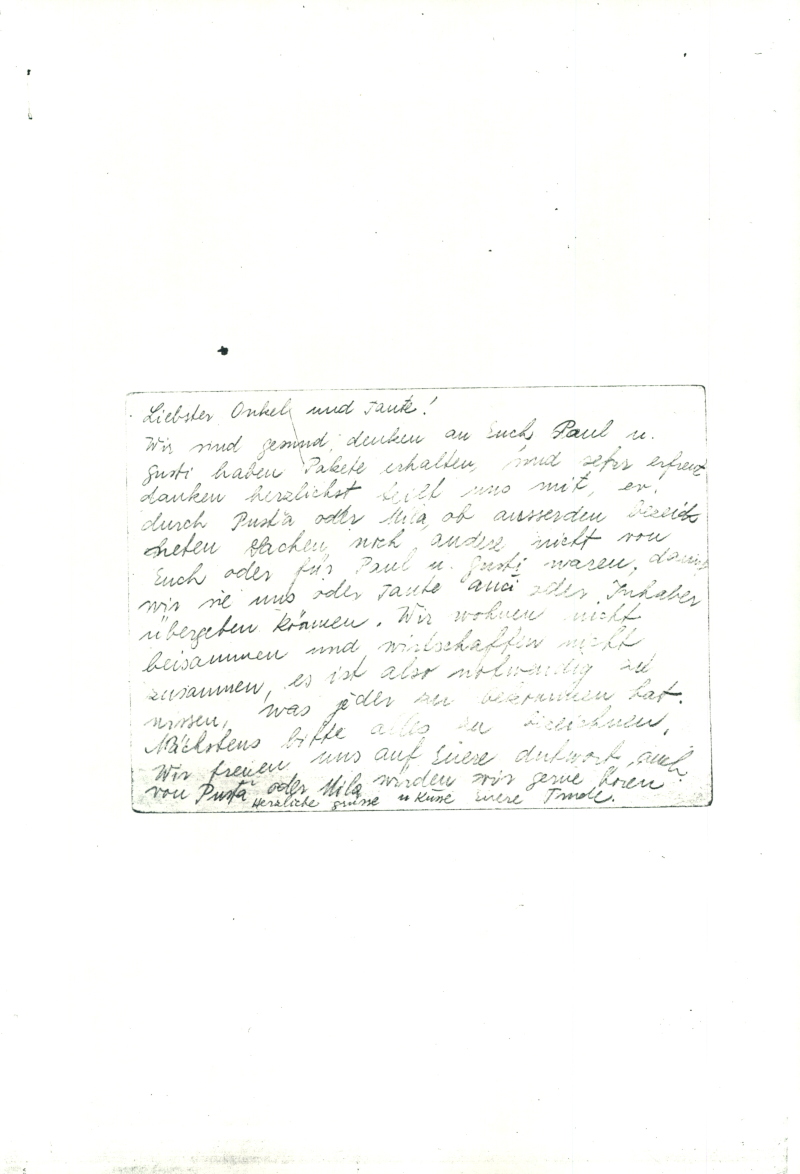 Liebster Onkel und Tante!
Wir sind gesund, denken an Euch, Paul u.
Gusti haben Pakete erhalten, sind sehr erfreut
danken herzlichst teilt uns mit, ev.
durch Pusta oder Mila, ob ausserden bezeich
neten Sachen noch andere nicht von
Euch oder für Paul u. Gusti waren, damit
wir sie uns oder Tante oder Inhaber
übergeben können. Wir wohnen nicht
beisammen und wirtschaften nicht
zusammen, es ist also notwendig zu
wissen, was jeder zu bekommen hat.
Nächstens bitte alles zu bezeichnen,
Wir freuen uns auf Euere Antwort, auch
von Pusta oder Mila würden wir gerne hören
Herzliche grüsse u Küsse Euere Trude.